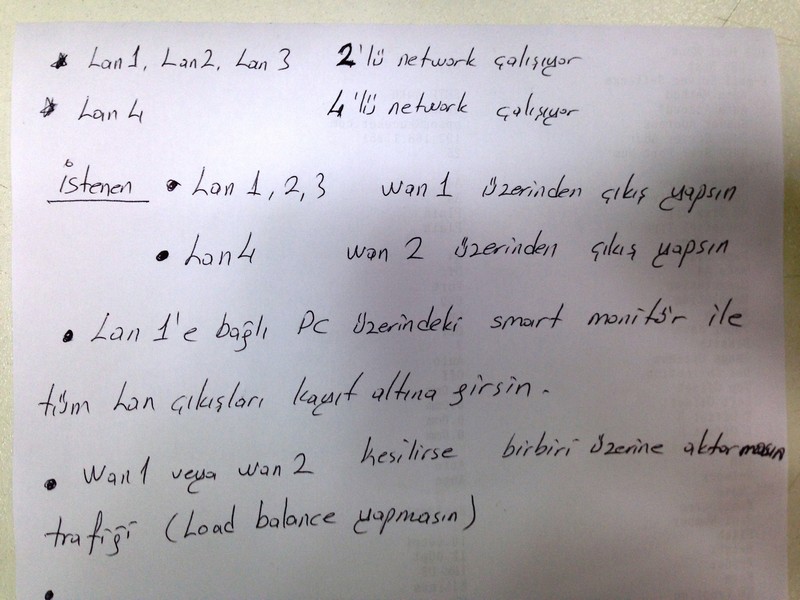 * Lan 1, Lan 2, Lan 3 2'lü network çalışıyor
* Lan 4 4'lü network çalışıyor
İstenen • Lan 1, 2, 3 wan 1 üzerinden çıkış yapsın
• Lan 4 wan 2 üzerinden çıkış yapsın
• Lan 1'e bağlı PC üzerindeki smart monitör ile
tüm Lan çıkışları kayıt altına girsin.
• Wan 1 veya wan 2 kesilirse birbiri üzerine aktarmasın
trafiği (Load balance yapmasın)
•